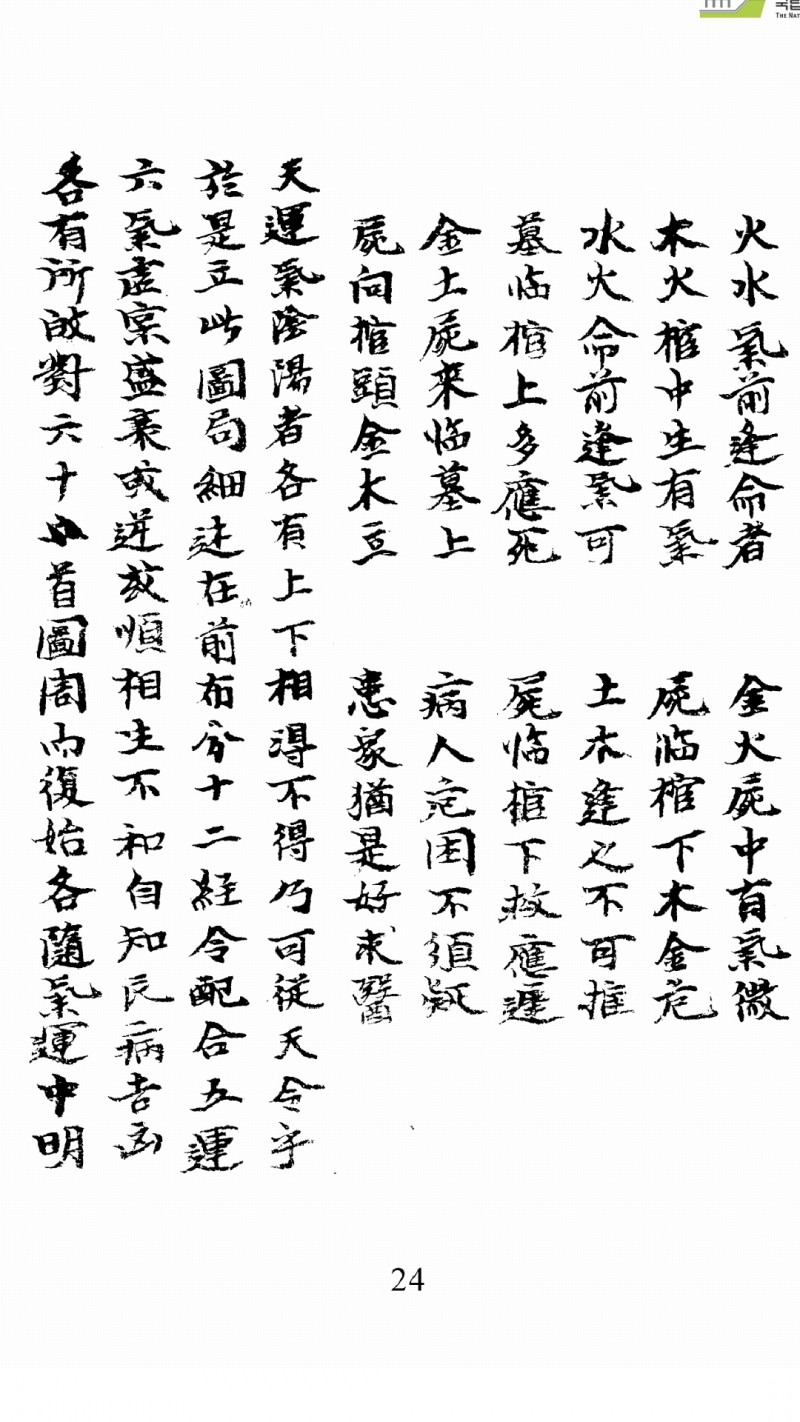 火水氣前逢命者 金火屍中有氣微
木火棺中生有氣 屍临棺下木金危
水火命前逢氣可 土木逢之不可推
墓临棺上多應死 屍临棺下救應遲
金土屍来临墓上 病人危困不須疑
屍向棺頭金木立 患家猶是好求醫
夫運氣陰陽者各有上下相得不得乃可從天令乎
於是立此圖局細述在前布分十二経令配合五運
六氣虚実盛衰或逆或順相生不和自知民病吉凶
各有所啟對六十首圖周而復始各隨氣運中明
24
THE NAT